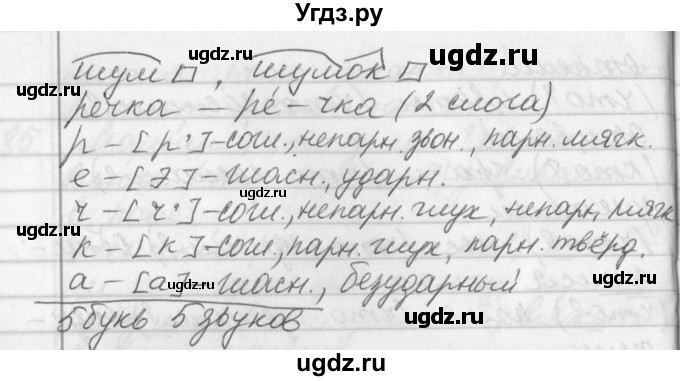 Угдз.ру
шум□, шумок□
речка – ре́-чка (2 слога)
р – [р'] – согл., непарн. звон., парн. мягк.
е – [э] – гласн., ударн.
ч – [ч'] – согл., непарн. глух., непарн. мягк
к – [к] – согл., парн. глух, парн. твёрд.
а – [а] – гласн., безударный
5 букв 5 звуков
ugdz.ru
ugdz.ru
ugdz.ru
ugdz.ru
ugdz.ru
ugdz.ru
ugdz.ru
ugdz.ru
ugdz.ru
ugdz.ru
ugdz.ru